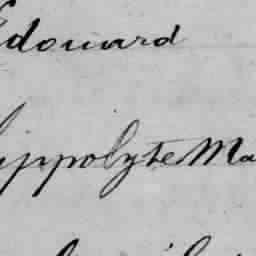 Edouard
hippolyte Ma